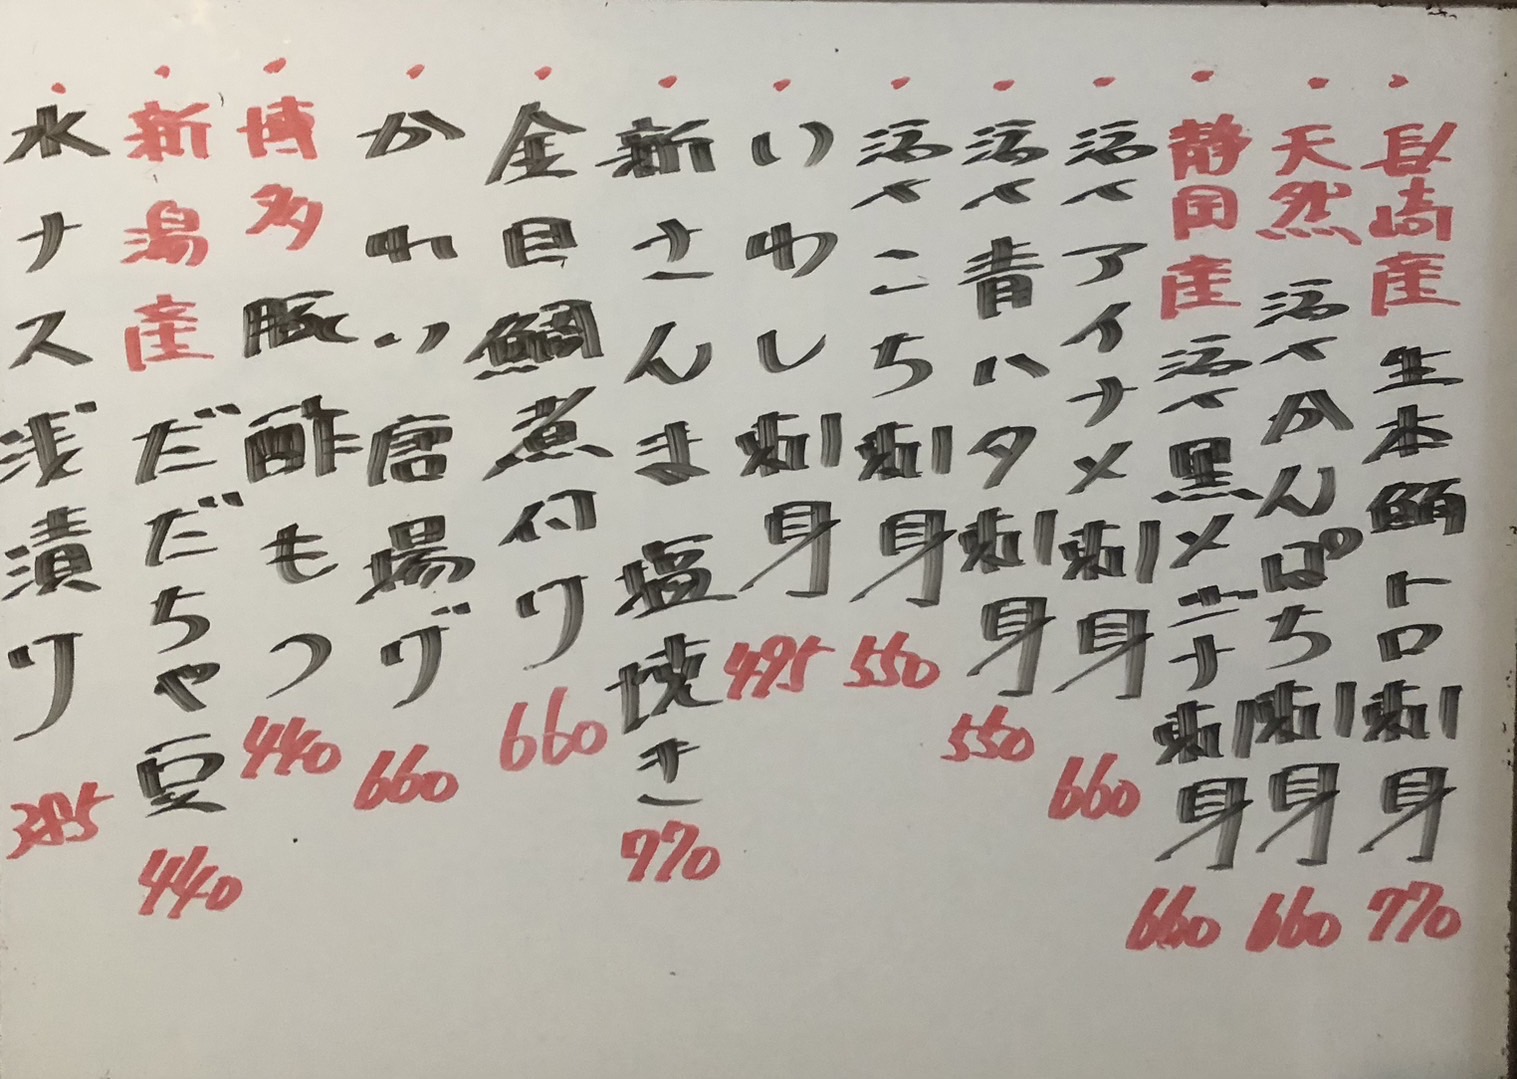 ・長崎産 生本鮪トロ刺身 770
・天然 活〆かんぱち刺身 660
・静岡産 活〆黒メジナ刺身 660
・活〆アイナメ刺身 660
・活〆青ハタ刺身 550
・活〆こち刺身 550
・いわし刺身 495
・新さんま塩焼き 770
・金目鯛煮付け 660
・かれい唐揚げ 660
・博多 豚酢もつ 440
・新潟産 だだちゃ豆 440
・水ナス浅漬け 385